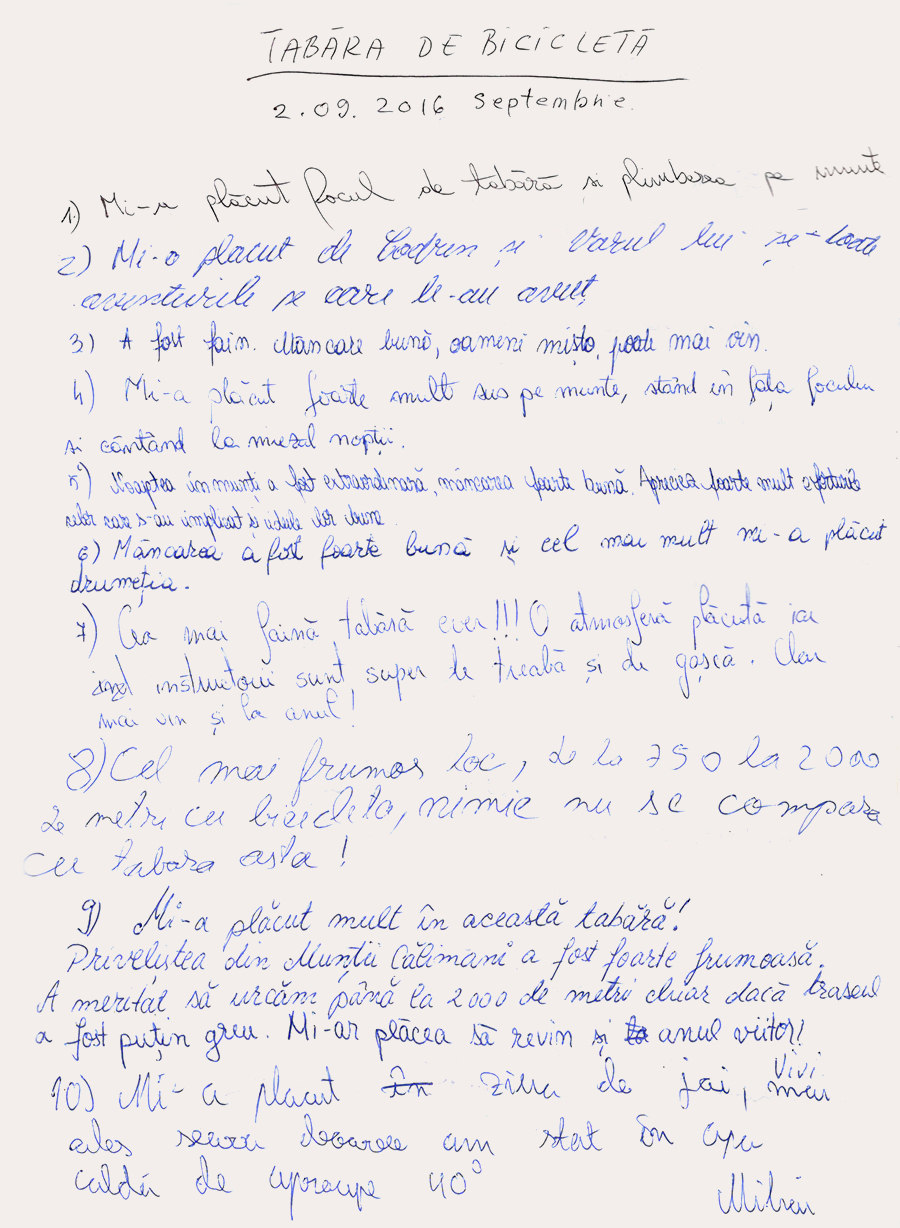 TABĂRA DE BICICLETĂ
2.09.2016 Septembrie.
1) Mi-a plăcut focul de tabără si plimbarea pe munte
2) Mi-a placut de Codrin și varul lui și toate
aventurile pe care le-au avut
3) A fost fain. Mâncare bună, oameni mișto, poate mai vin.
4) Mi-a plăcut foarte mult sus pe munte, stând în fața focului
si cântând la miezul nopții.
5) Noaptea în munți a fost extraordinară, mâncarea foarte bună. Apreciez foarte mult eforturile
celor care s-au implicat și ideile lor bune
6) Mâncarea a fost foarte bună și cel mai mult mi-a plăcut
drumeția.
7) Cea mai faină tabără ever!!! O atmosferă plăcută iar
instructorii sunt super de treabă și de gașcă. Clar
mai vin și la anul!
8) Cel mai frumos loc, de la 750 la 2000
de metri cu bicicleta, nimic nu se compara
cu tabara asta!
9) Mi-a plăcut mult în această tabără!
Priveliștea din Munții Călimani a fost foarte frumoasă.
A meritat să urcăm până la 2000 de metri chiar dacă traseul
a fost puțin greu. Mi-ar plăcea să revin și la anul viitor!
10) Mi-a placut în ziua de joi, Vivi mai
ales seara deoarece am stat în apa
caldă de aproape 40°
Mihai